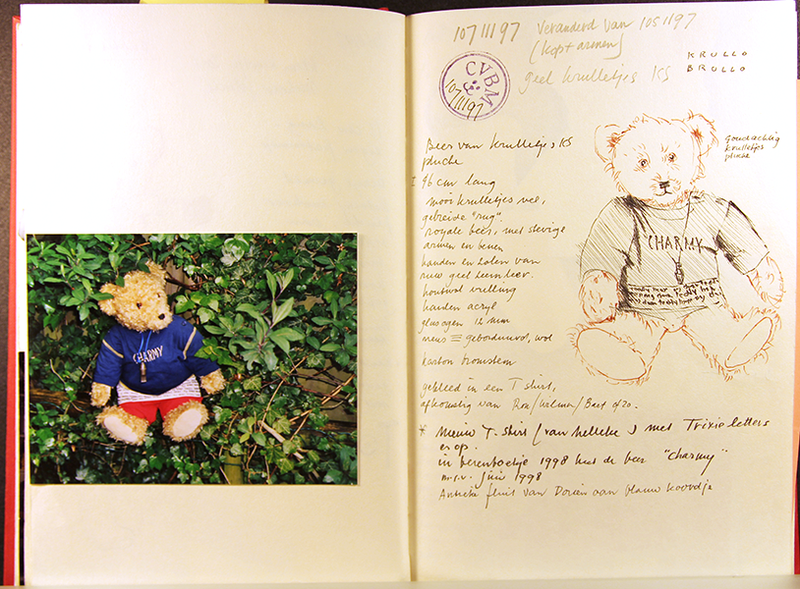 CHARMY
107 III 97 Veranderd van 105 I 97
(kop + armen)
geel krulletjes KS
KRULLO
BRULLO
CVBM
107 III 97
Beer van krulletjes KS
pluche
goudachtig
krulletjes
pluche
46 cm lang
mooi krulletjes vel,
gebreide "rug".
royale beer, met stevige
armen en benen
handen en zolen van
geel leer.
houtwol vulling
handen acryl
glasogen 12 mm
neus geborduurd, wol
karton bromstem
CHARMY
gekleed in een T shirt,
afkomstig van Ron/Wilma/Bart
* Nieuw T-shirt (van Nelleke) met Trixie letters
erop.
in berenboekje 1998 heet de beer "Charmy"
m.i.v. juni 1998
Antieke fluit van Dorien aan blauw koordje